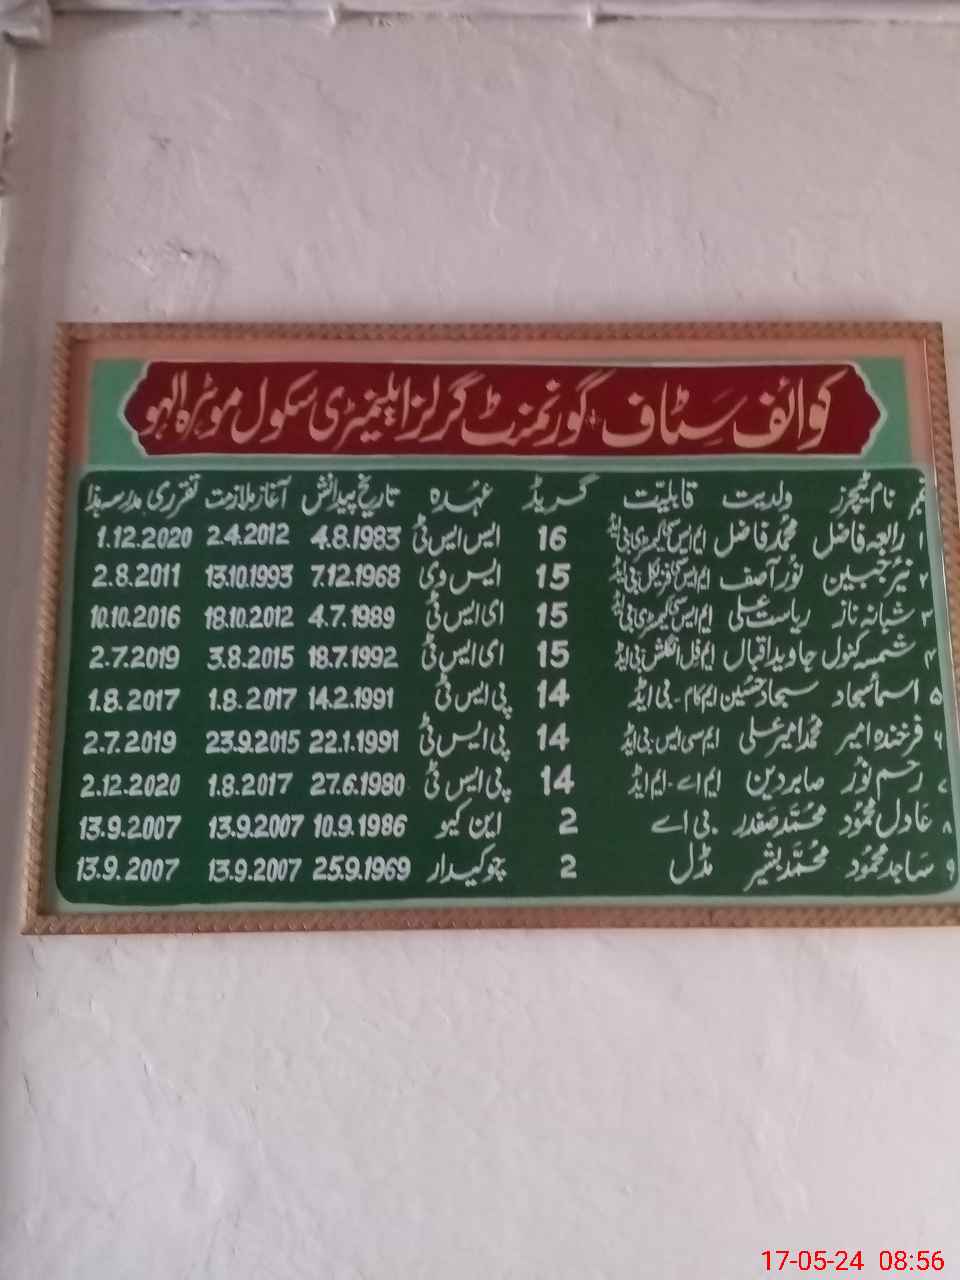 کوائف سٹاف گورنمنٹ گرلز ایلیمنٹری سکول موڑہ الہو
نمبر نام ٹیچرز ولدیت قابلیت گریڈ عہدہ تاریخ پیدائش آغاز ملازمت تقرری مدرسہ ہذا
۱ رابعہ فاضل محمد فاضل ایم ایس سی کیمسٹری بی ایڈ 16 ایس ایس ٹی 4.8.1983 2.4.2012 1.12.2020
۲ نیر جبین نور آصف ایم ایس سی فزیکل بی ایڈ 15 ایس وی 7.12.1968 13.10.1993 2.8.2011
۳ شبانہ ناز ریاست علی ایم ایس سی کیمسٹری بی ایڈ 15 ای ایس ٹی 4.7.1989 18.10.2012 10.10.2016
۴ شمسہ کنول جاوید اقبال ایم فل انگلش بی ایڈ 15 ای ایس ٹی 18.7.1992 3.8.2015 2.7.2019
۵ اسماء سجاد سجاد حسین ایم کام - بی ایڈ 14 پی ایس ٹی 14.2.1991 1.8.2017 1.8.2017
۶ فرخندہ امیر محمد امیر علی ایم سی ایس - بی ایڈ 14 پی ایس ٹی 22.1.1991 23.9.2015 2.7.2019
۷ رحم نور صابر دین ایم اے - ایم ایڈ 14 پی ایس ٹی 27.6.1980 1.8.2017 2.12.2020
۸ عادل محمود محمد صفدر بی اے 2 این کیو 10.9.1986 13.9.2007 13.9.2007
۹ ساجد محمود محمد بشیر مڈل 2 چوکیدار 25.9.1969 13.9.2007 13.9.2007
17-05-24 08:56